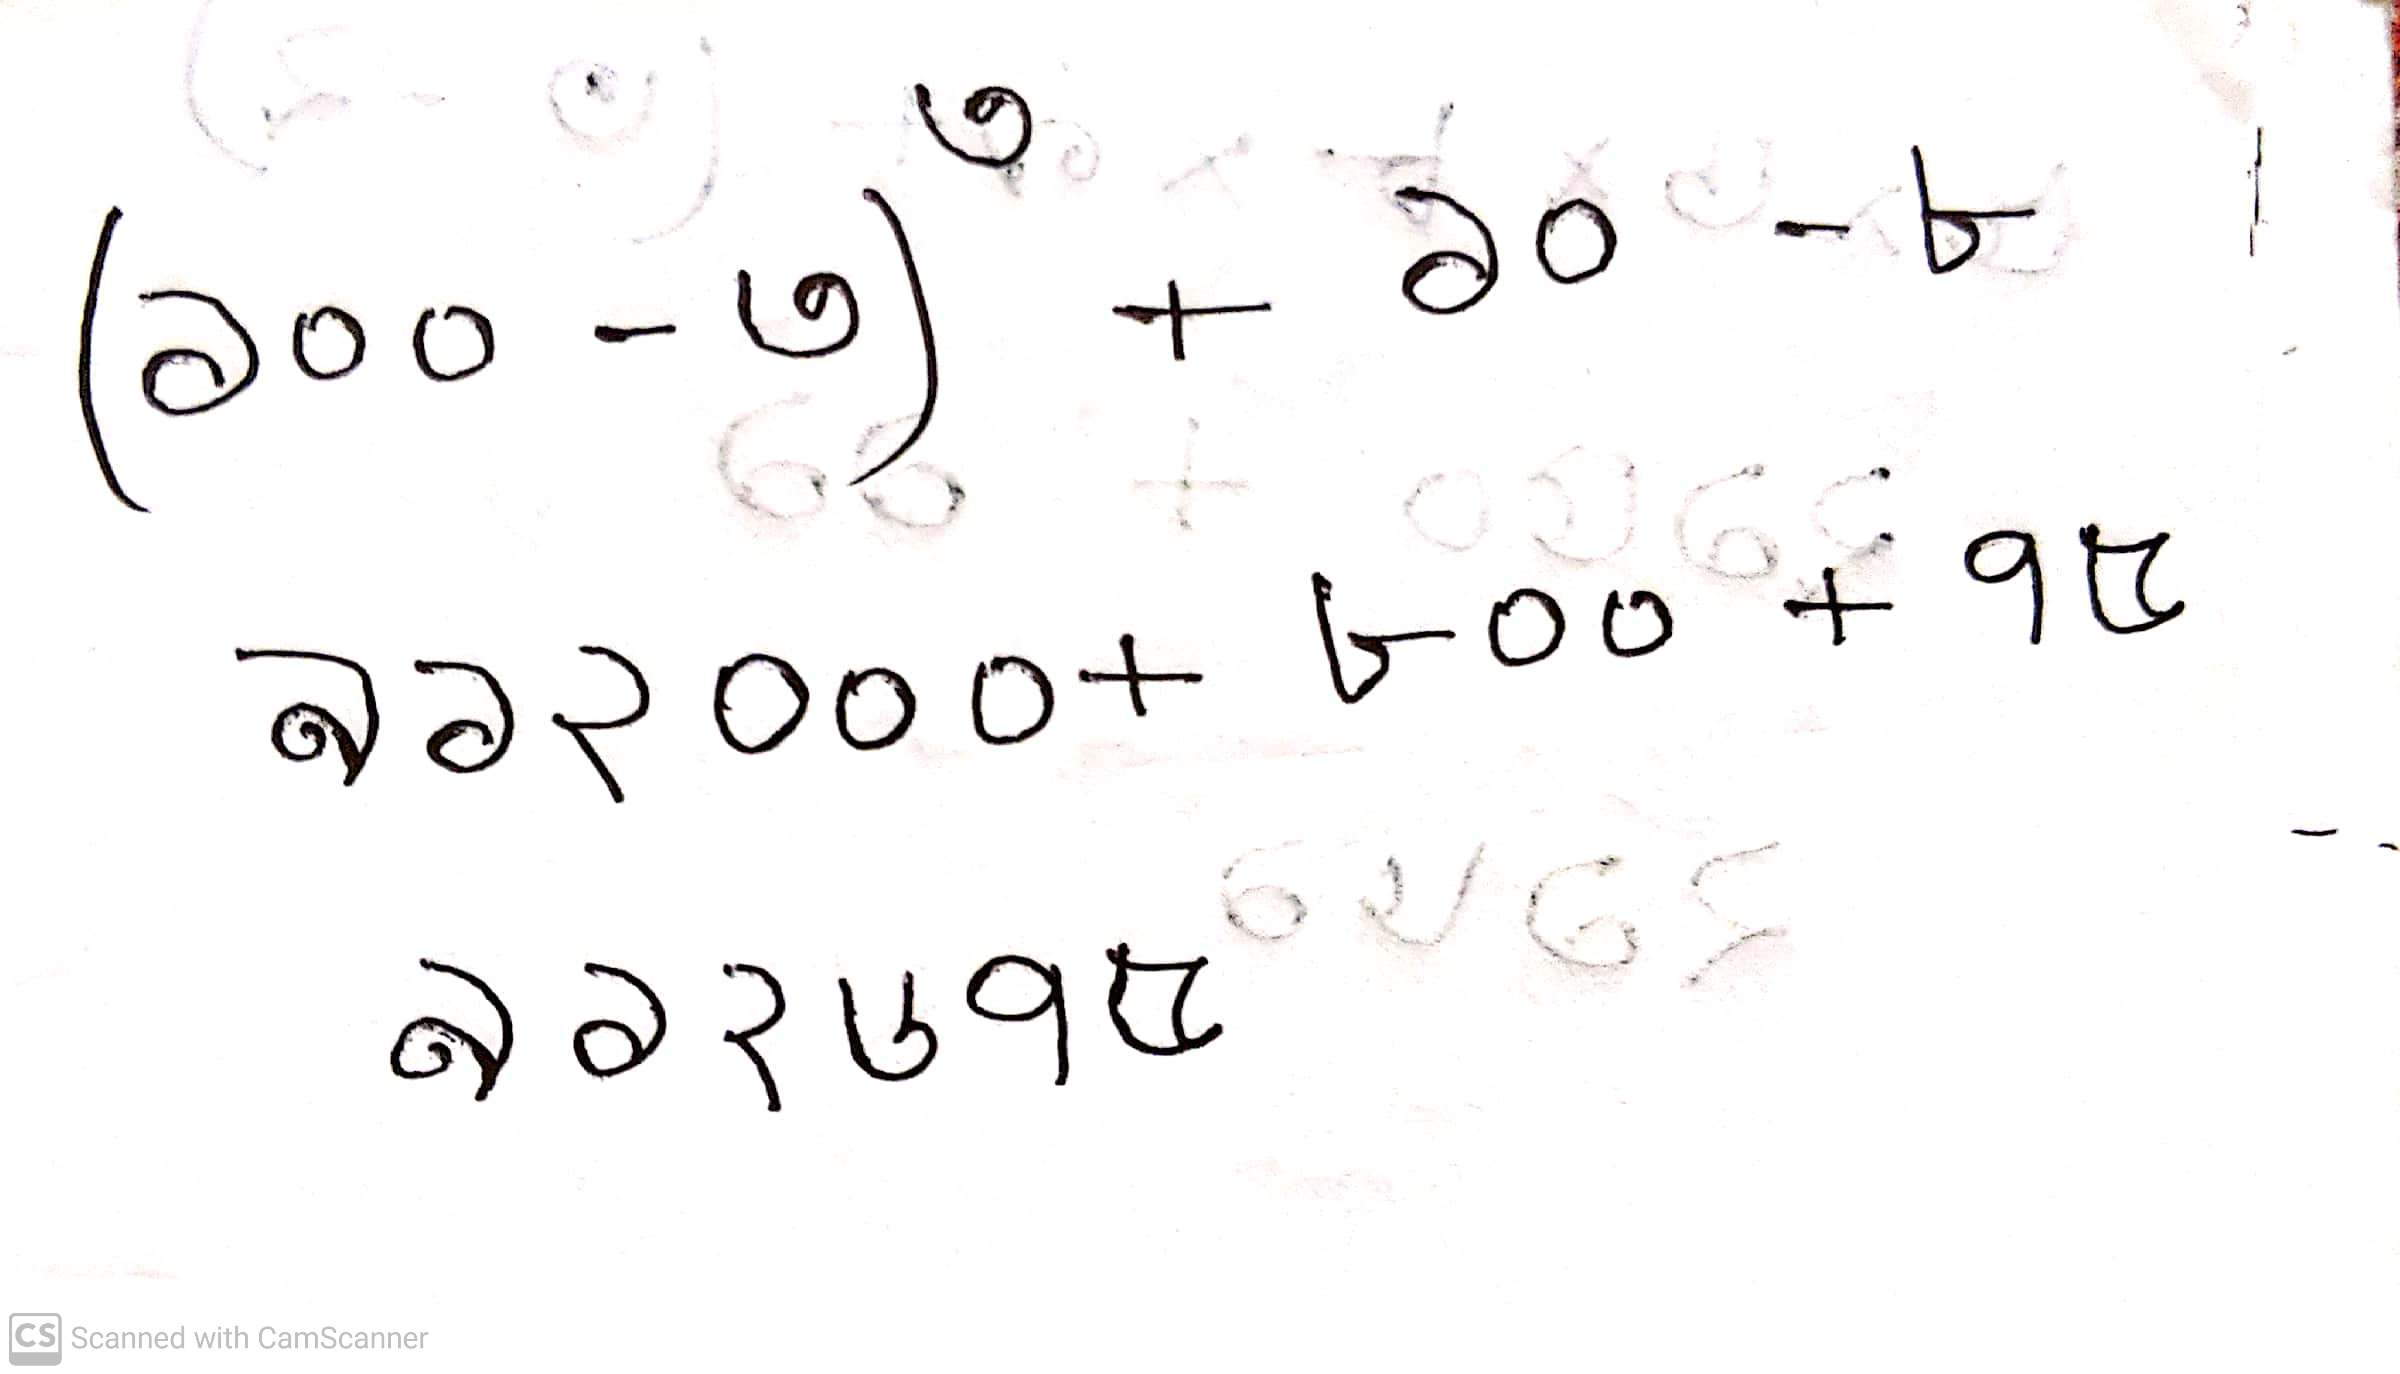 (১০০ - ৩)^৩ + ১০ - ৮
৯১২০০০ + ৮০০ + ৭৫
৯১২৬৭৫
CS Scanned with CamScanner